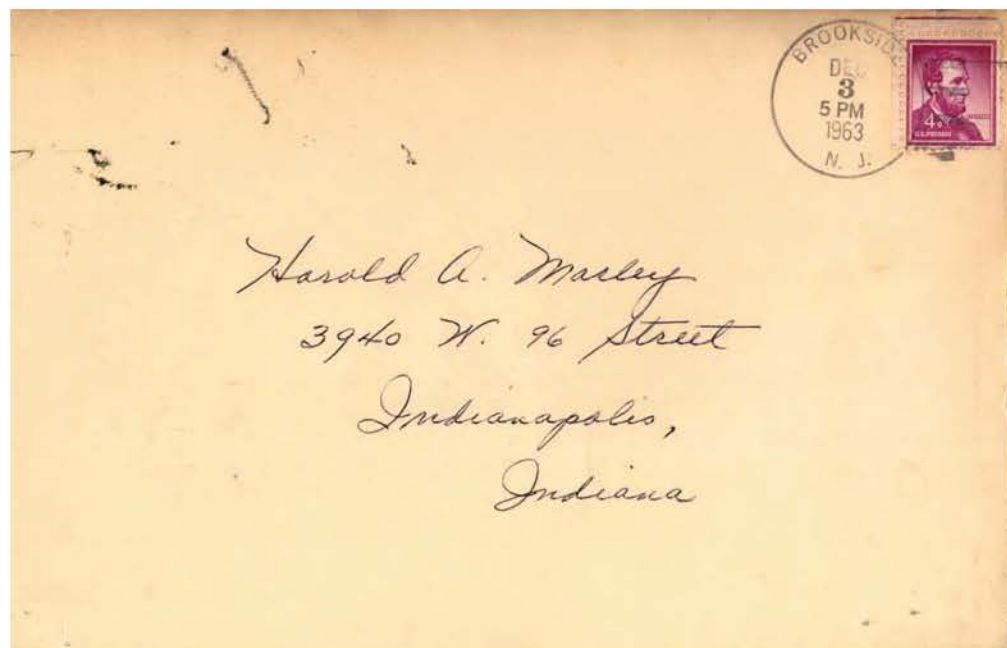 BROOKSIDE
DEC
3
5 PM
1963
N. J.
4¢
U.S. POSTAGE
Harold A. Marley
3940 W. 96 Street
Indianapolis,
Indiana